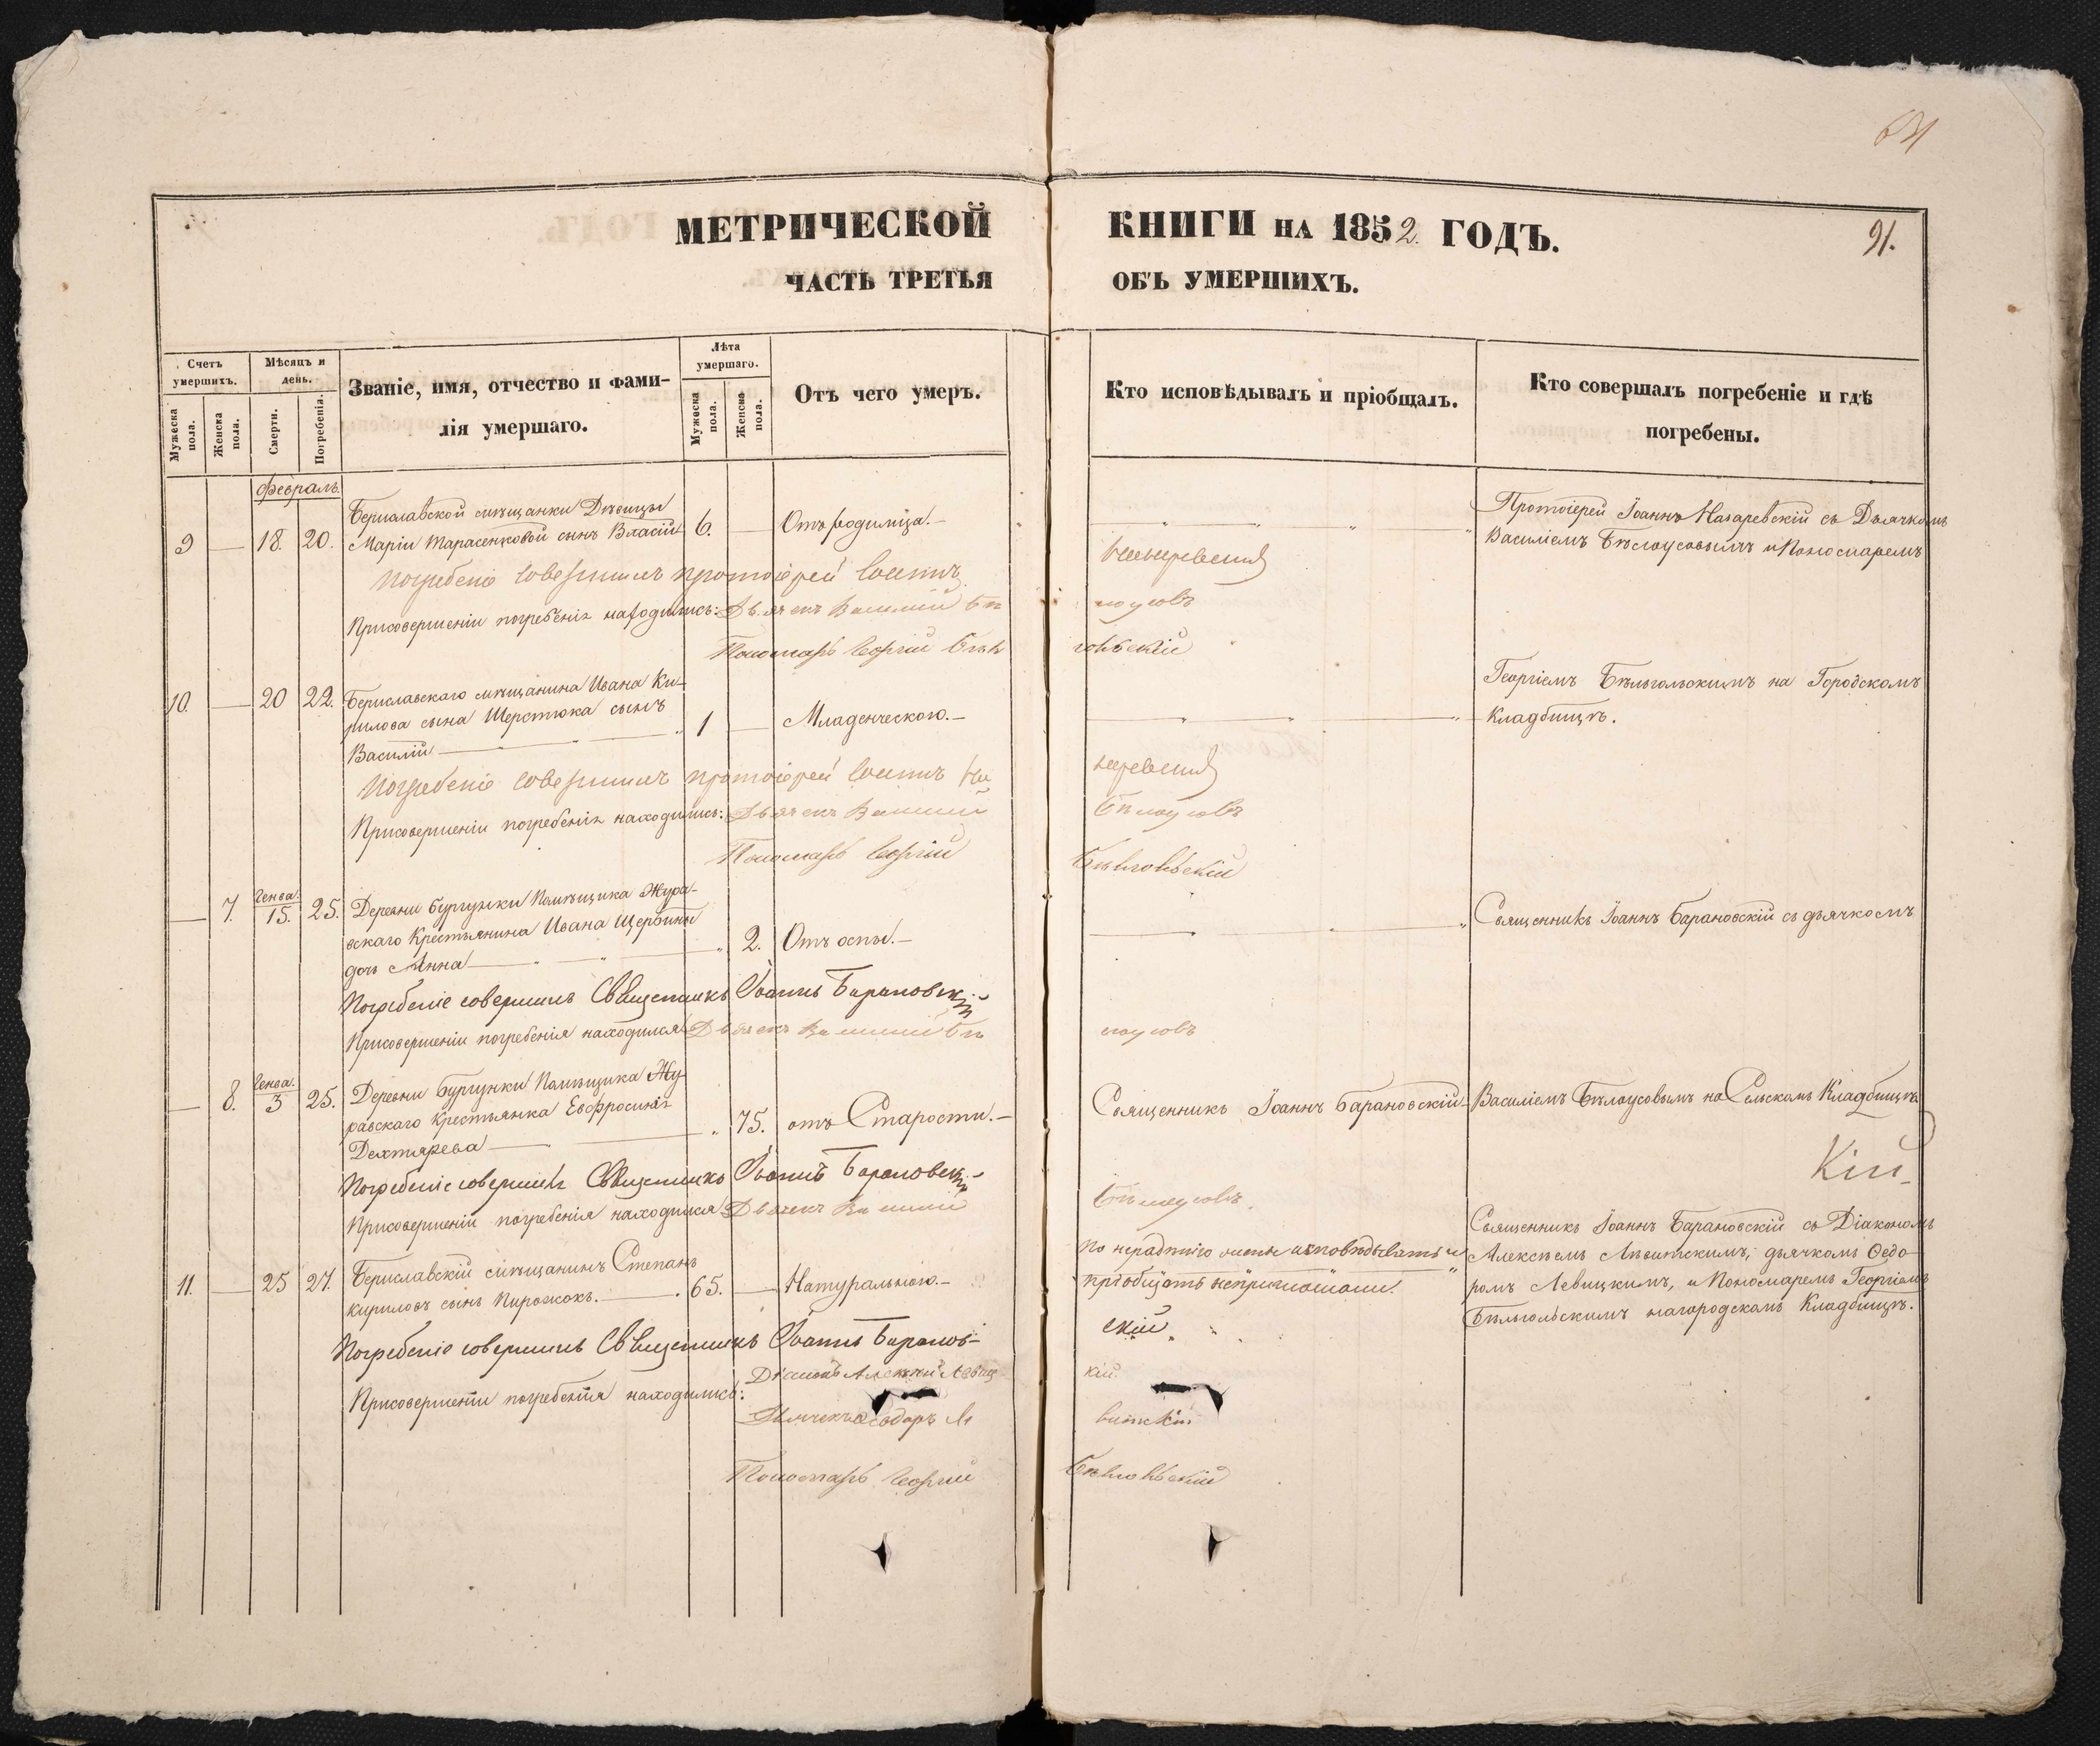 64
МЕТРИЧЕСКОЙ КНИГИ НА 1852. ГОДЪ.
91.
ЧАСТЬ ТРЕТЬЯ ОБЪ УМЕРШИХЪ.
Счетъ умершихъ.
Мѣсяцъ и день.
Званіе, имя, отчество и фамилія умершаго.
Лѣта умершаго.
Отъ чего умеръ.
Кто исповѣдывалъ и пріобщалъ.
Кто совершалъ погребеніе и гдѣ погребены.
Мужеска пола.
Женска пола.
Смерти.
Погребенія.
Мужеска пола.
Женска пола.
Февраль.
9 — 18. 20. Бериславской мѣщанки Дѣвицы
Маріи Тарасенковой сынъ Власій 6. — Отъ родимца.—
Протоіерей Іоаннъ Назаревскій съ Дьячкомъ
Василіемъ Бѣлоусовымъ и Пономаремъ
Погребеніе совершилъ протоіерей Іоаннъ
Присовершеніи погребенія находились: Дьячекъ Василий Бѣлоусовъ
Пономарь Георгій
10. — 20 22. Бериславскаго мѣщанина Ивана Ки-
рилова сына Шерстюка сынъ
Василій — 1 — Младенческою.—
Георгіемъ Бѣльгольскимъ на Городскомъ
Кладбищѣ.
Погребеніе совершилъ протоіерей Іоаннъ На
заревский
Присовершеніи погребенія находились: Дьячекъ Василий
Бѣлоусовъ
Пономарь Георгій
— 7. Генва. 15. 25. Деревни Бургунки Помѣщика Журав-
скаго Крестьянина Ивана Щербины
дочь Анна — 2. Отъ оспы.—
Священникъ Іоаннъ Барановскій съ дьячкомъ
Погребеніе совершилъ Священникъ Іоаннъ Барановскій
Присовершеніи погребенія находился Дьячекъ Василий Бѣ
лоусовъ
— 8. Генва. 3 25. Деревни Бургунки Помѣщика Жу-
равскаго Крестьянка Евфросинія
Дехтярева — 75. отъ Старости.—
Священникъ Іоаннъ Барановскій
Василіемъ Бѣлоусовымъ на Сельскомъ Кладбищѣ
Кій
Погребеніе совершилъ Священникъ Іоаннъ Барановскій
Присовершеніи погребенія находился Дьячекъ Василий
Бѣлоусовъ.
11. — 25 27. Бериславскій мѣщанинъ Степанъ
Кириловъ сынъ Пирожокъ. — 65. — Натуральною.—
По нерадѣнію исповѣдывать и
пріобщать
Священникъ Іоаннъ Барановскій съ Діакономъ
Алексѣемъ Левитскимъ, дьячкомъ Ѳедо-
ромъ Левицкимъ, и Пономаремъ Георгіемъ
Бѣльгольскимъ нагородскомъ Кладбищѣ.
Погребеніе совершилъ Священникъ Іоаннъ Баранов-
скій
Присовершеніи погребенія находились:
Діаконъ Алексѣй Левиц
кій
Дьячекъ Ѳеодоръ Ле
витскій
Пономарь Георгій